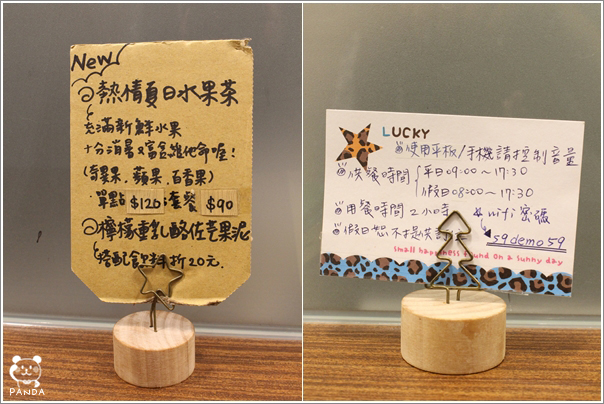 New
熱情夏日水果茶
充滿新鮮水果
十分消暑又富含維他命喔!
(奇異果、蘋果、百香果)
單點 $120 套餐 $90
檸檬重乳酪佐芒果泥
搭配飲料折20元.
LUCKY
使用平板/手機請控制音量
供餐時間 平日09:00~17:30
假日08:00~17:30
用餐時間 2小時
wifi 密碼
59demo59
假日恕不提供
small happiness found on a sunny day
PANDA